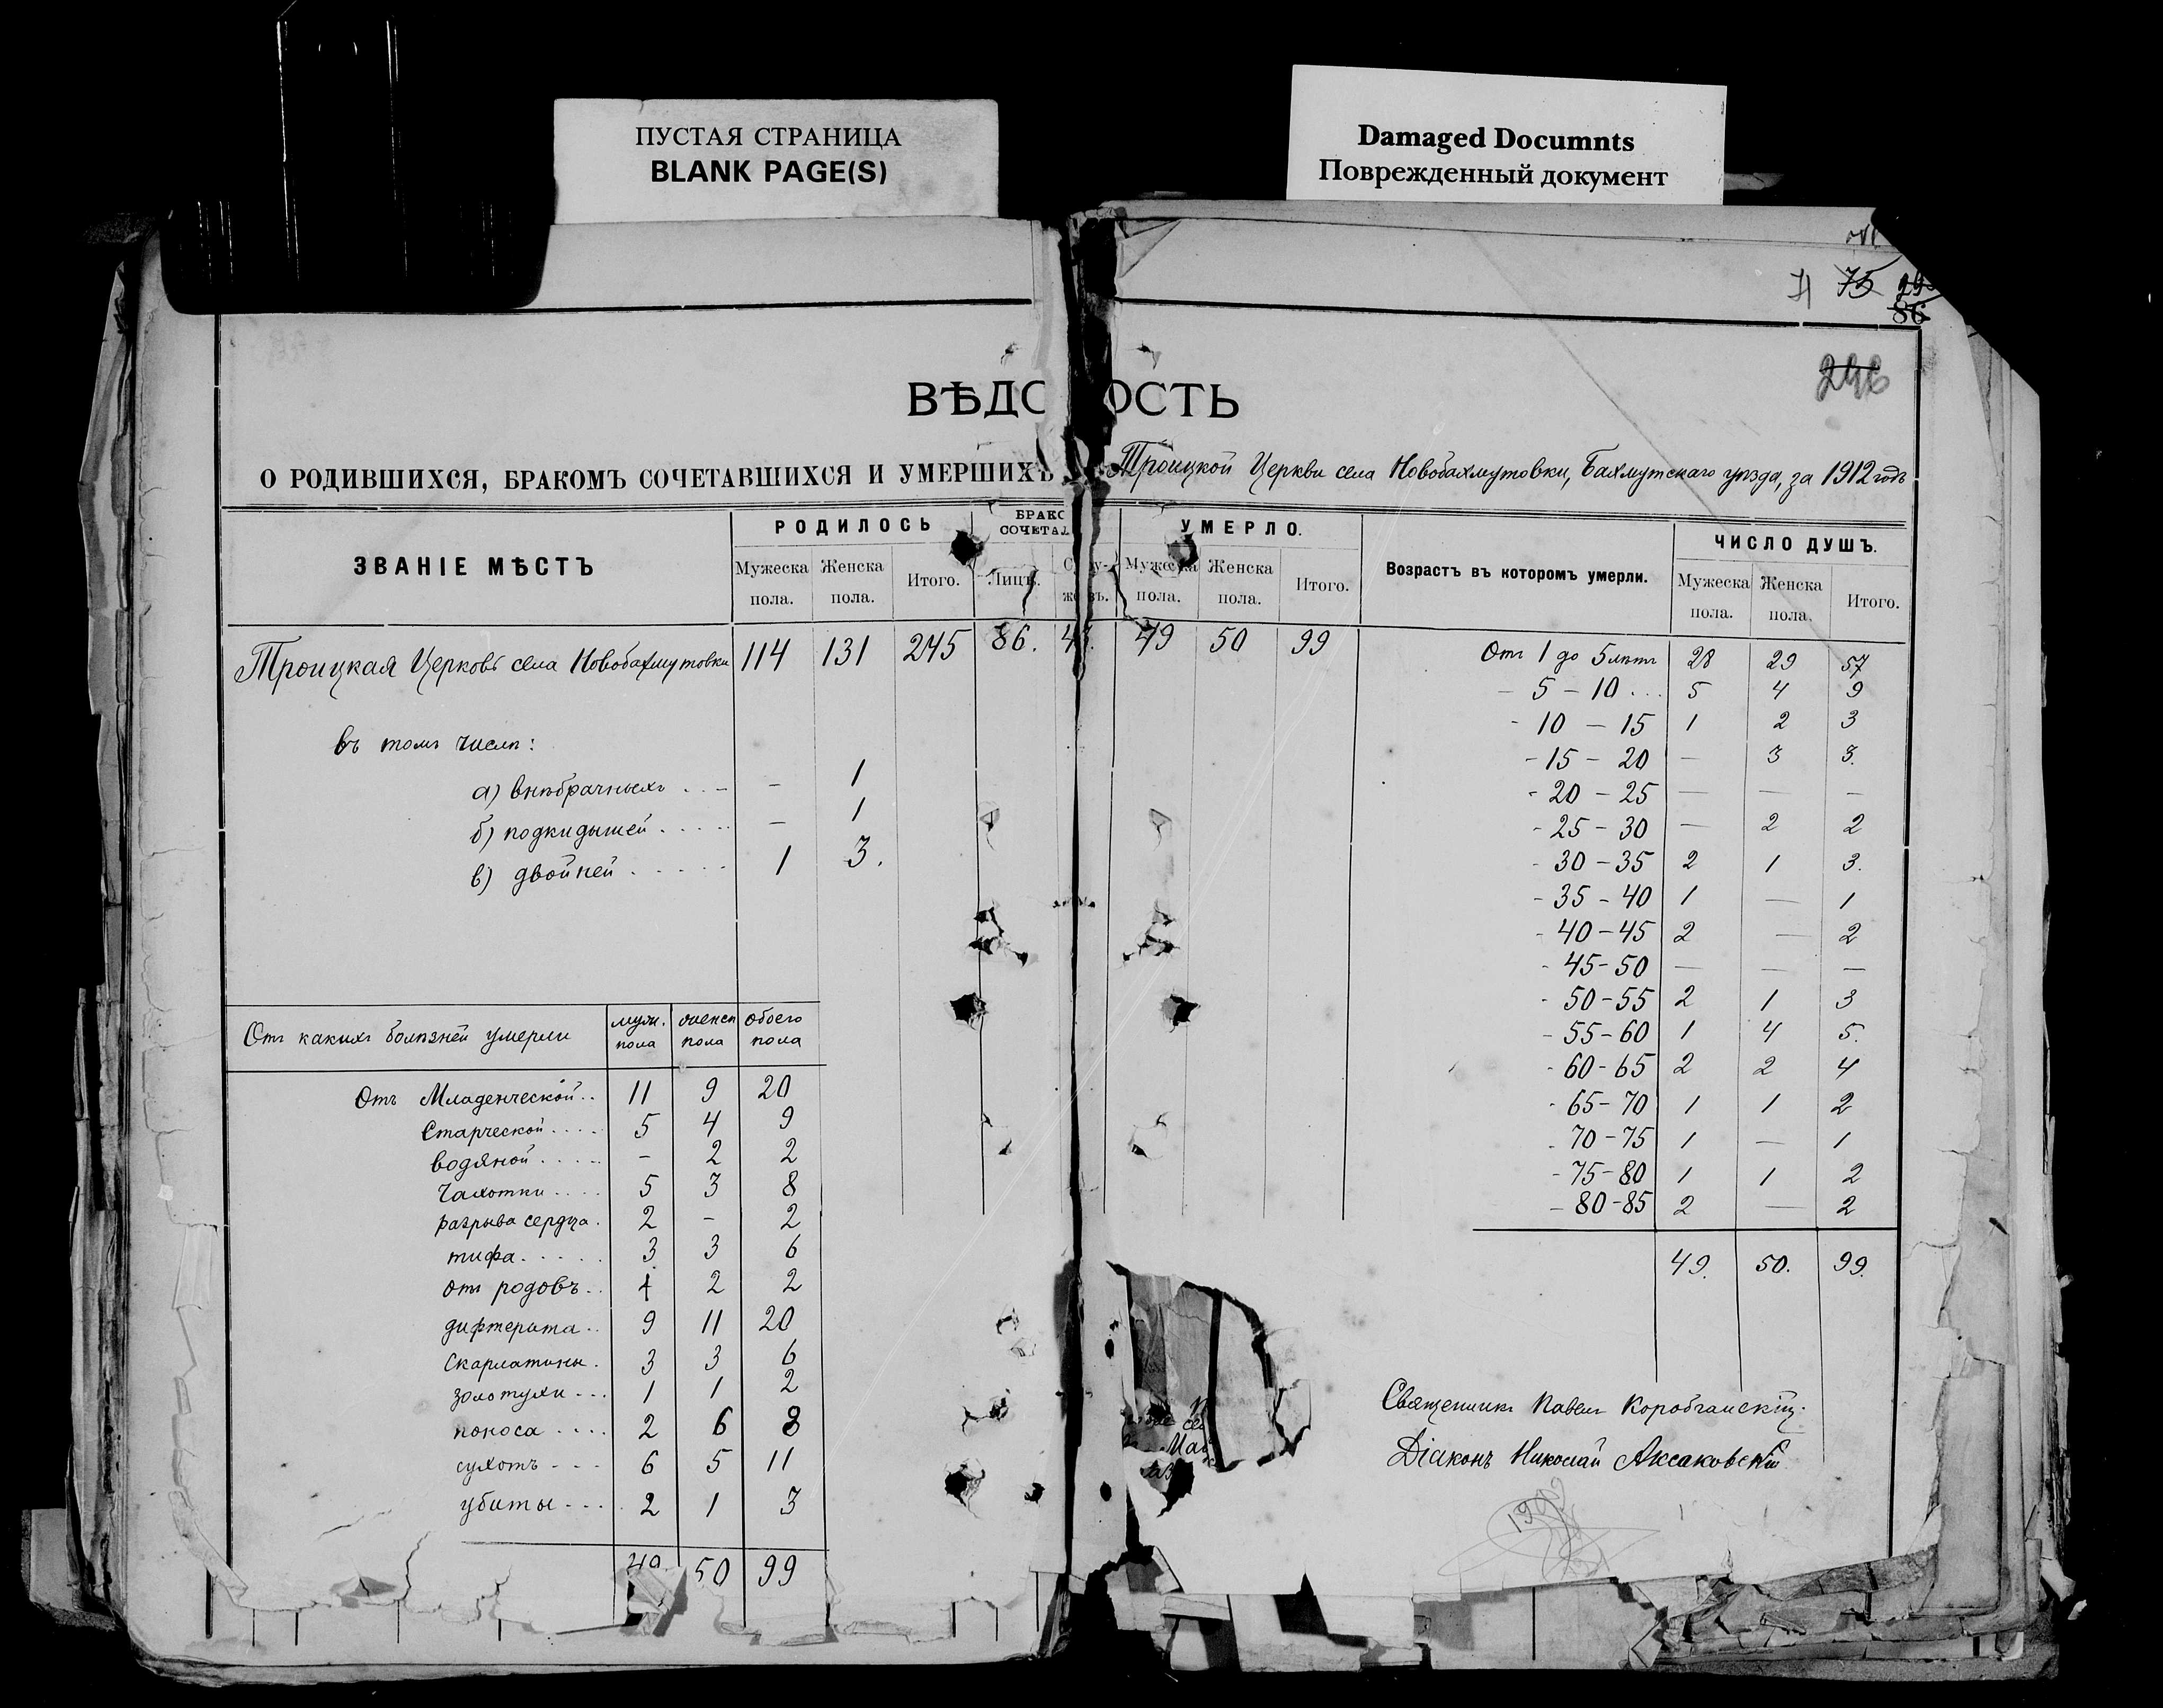 ПУСТАЯ СТРАНИЦА
BLANK PAGE(S)
Damaged Documnts
Поврежденный документ
75
86
ВѢДО ОСТЬ
О РОДИВШИХСЯ, БРАКОМЪ СОЧЕТАВШИХСЯ И УМЕРШИХЪ Троицкой Церкви села Новобахмутовки, Бахмутскаго уѣзда, за 1912 годъ
ЗВАНІЕ МѢСТЪ
РОДИЛОСЬ
Мужеска пола. Женска пола. Итого.
БРАКО СОЧЕТАЛ
Лицъ.
УМЕРЛО.
Мужеска пола. Женска пола. Итого.
Возрастъ въ которомъ умерли.
ЧИСЛО ДУШЪ.
Мужеска пола. Женска пола. Итого.
Троицкая Церковь села Новобахмутовки 114 131 245 86. 43. 49 50 99
въ томъ числѣ:
а) внѣбрачныхъ . . – – 1
б) подкидышей . . . . . – 1
в) двойней . . . . . 1 3.
Отъ какихъ болѣзней умерли муж. пола женск пола обоего пола
Отъ Младенческой . . 11 9 20
Старческой . . . . 5 4 9
водяной . . . . . – 2 2
Чахотки . . . . 5 3 8
разрыва сердца . 2 – 2
тифа . . . . . 3 3 6
отъ родовъ . . 2 2
дифтерита . . 9 11 20
Скарлатины . 3 3 6
золотухи . . . 1 1 2
поноса . . . . 2 6 8
сухотъ - - - 6 5 11
убиты - - - 2 1 3
49 50 99
Отъ 1 до 5 лѣтъ 28 29 57
– 5 – 10 . . . 5 4 9
- 10 – 15 1 2 3
- 15 – 20 — 3 3.
- 20 – 25 — — —
- 25 – 30 — 2 2
- 30 – 35 2 1 3.
- 35 – 40 1 — 1
- 40 – 45 2 — 2
- 45 - 50 — — —
- 50 - 55 2 1 3
- 55 - 60 1 4 5.
- 60 - 65 2 2 4
- 65 - 70 1 1 2
- 70 - 75 1 — 1
- 75 - 80 1 1 2
- 80 - 85 2 — 2
49. 50. 99.
Священникъ Павелъ
Діаконъ Николай Аксаковскій